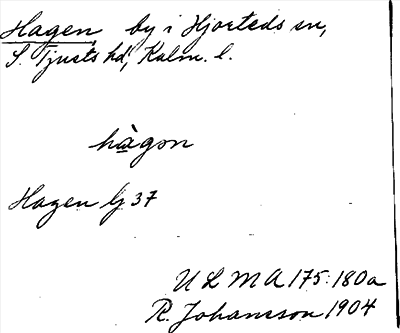 Hagen, by i Hjorteds sn,
S. Tjusts hd, Kalm. l.
hàgon
Hagen Gj 37
ULMA 175:180a
R. Johansson 1904